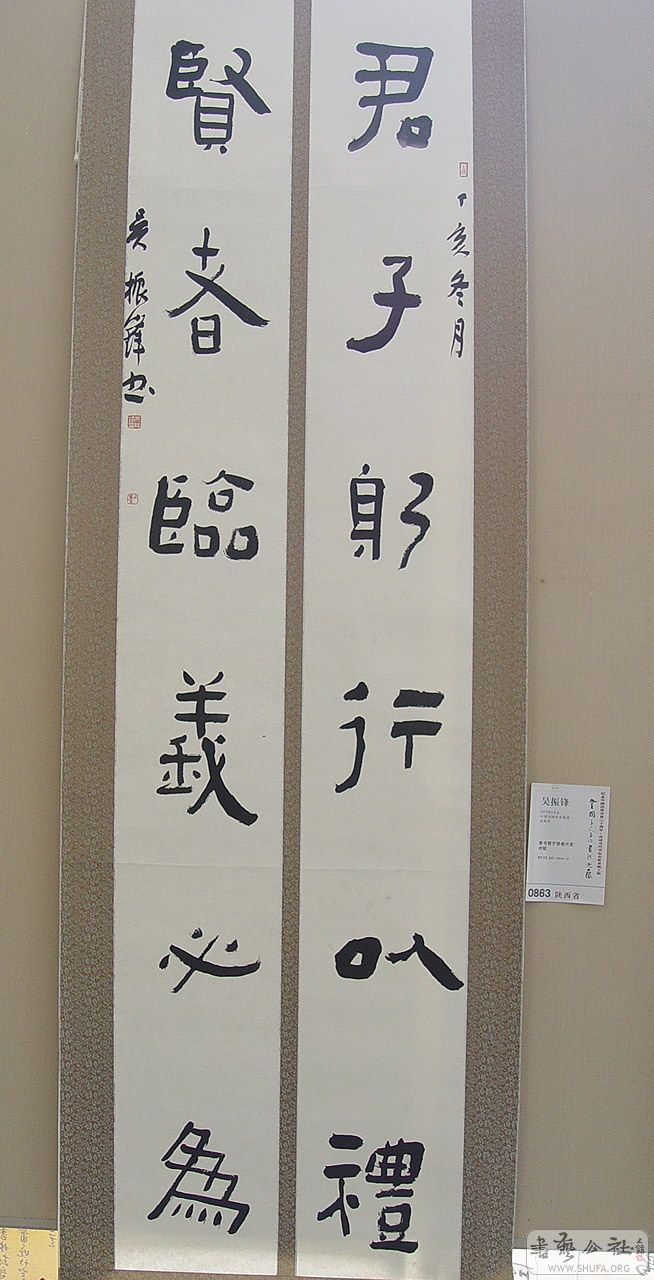 君子躬行以禮
丁亥冬月
賢者臨義必為
吴振鋒书
吴振锋
0863 陕西省
書藝公社
WWW.SHUFA.ORG